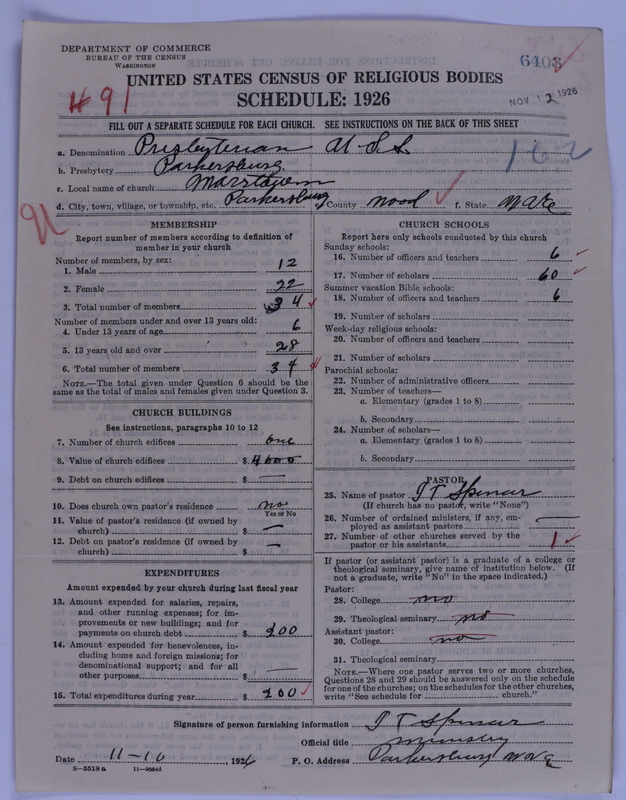 DEPARTMENT OF COMMERCE
BUREAU OF THE CENSUS
WASHINGTON
6403
UNITED STATES CENSUS OF RELIGIOUS BODIES
SCHEDULE: 1926
# 91
NOV 12 1926
FILL OUT A SEPARATE SCHEDULE FOR EACH CHURCH. SEE INSTRUCTIONS ON THE BACK OF THIS SHEET
a. Denomination Presbyterian U S A
162
b. Presbytery Parkersburg
c. Local name of church
d. City, town, village, or township, etc. Parkersburg County Wood f. State W Va
MEMBERSHIP
Report number of members according to definition of
member in your church
Number of members, by sex:
1. Male 12
2. Female 22
3. Total number of members 34
Number of members under and over 13 years old:
4. Under 13 years of age 6
5. 13 years old and over 28
6. Total number of members 34
NOTE.—The total given under Question 6 should be the
same as the total of males and females given under Question 3.
CHURCH BUILDINGS
See instructions, paragraphs 10 to 12
7. Number of church edifices one
8. Value of church edifices $ 4000
9. Debt on church edifices $ —
10. Does church own pastor's residence no
Yes or No
11. Value of pastor's residence (if owned by
church) $ —
12. Debt on pastor's residence (if owned by
church) $ —
EXPENDITURES
Amount expended by your church during last fiscal year
13. Amount expended for salaries, repairs,
and other running expenses; for im-
provements or new buildings; and for
payments on church debt $ 200
14. Amount expended for benevolences, in-
cluding home and foreign missions; for
denominational support; and for all
other purposes $ —
15. Total expenditures during year $ 200
CHURCH SCHOOLS
Report here only schools conducted by this church
Sunday schools:
16. Number of officers and teachers 6
17. Number of scholars 60
Summer vacation Bible schools:
18. Number of officers and teachers 6
19. Number of scholars
Week-day religious schools:
20. Number of officers and teachers
21. Number of scholars
Parochial schools:
22. Number of administrative officers
23. Number of teachers—
a. Elementary (grades 1 to 8)
b. Secondary
24. Number of scholars—
a. Elementary (grades 1 to 8)
b. Secondary
PASTOR
25. Name of pastor J T Spencer
(If church has no pastor, write "None")
26. Number of ordained ministers, if any, em-
ployed as assistant pastors —
27. Number of other churches served by the
pastor or his assistants 1
If pastor (or assistant pastor) is a graduate of a college or
theological seminary, give name of institution below. (If
not a graduate, write "No" in the space indicated.)
Pastor:
28. College no
29. Theological seminary no
Assistant pastor:
30. College no
31. Theological seminary
NOTE.—Where one pastor serves two or more churches,
Questions 28 and 29 should be answered only on the schedule
for one of the churches; on the schedules for the other churches,
write "See schedule for church."
Signature of person furnishing information J T Spencer
Official title
Date 11-10, 1926 P. O. Address Parkersburg W Va
8—5518 a